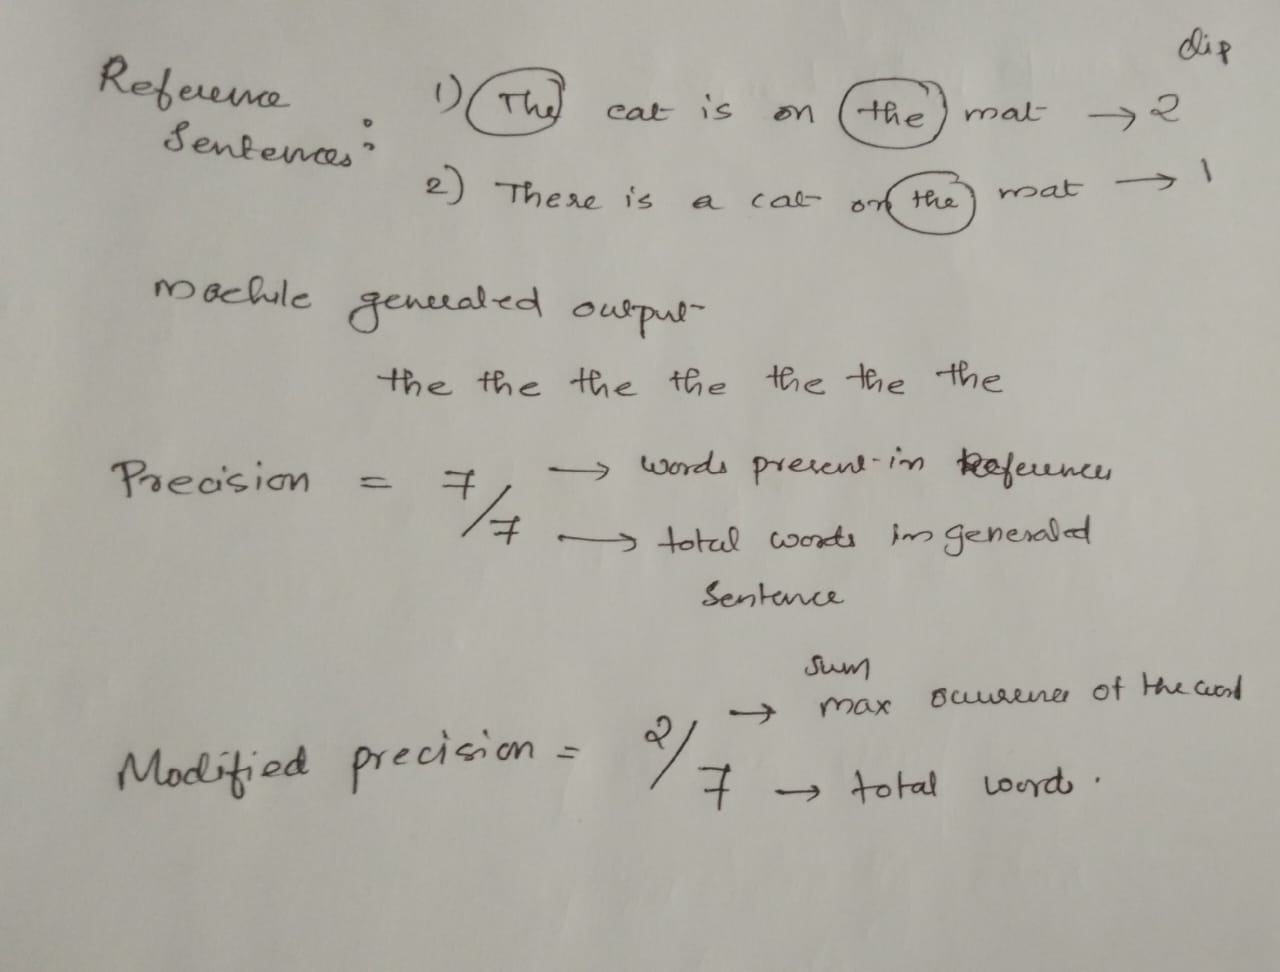 clip
Reference 1) The cat is on the mat → 2
Sentences:
2) There is a cat on the mat → 1
machine generated output
the the the the the the the
Precision = 7/7 → words present in References
→ total words in generated
Sentence
sum
Modified precision = 2/7 → max occurences of the word
→ total words.